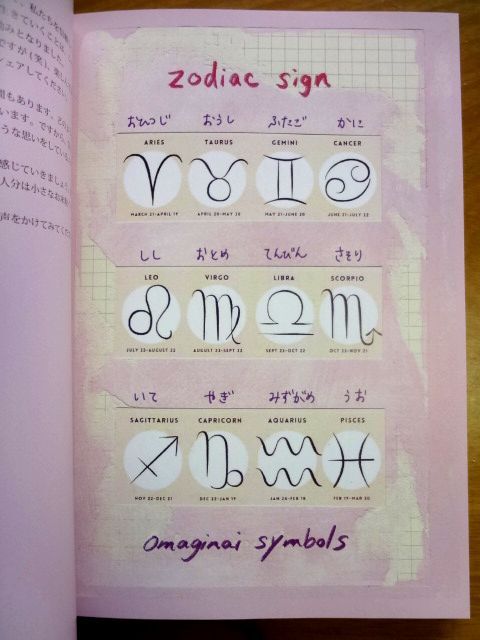 、私たちを
きていくことは、
となりました。
ですが(笑)、
シェアしてください
もあります。
います。ですから、
うな思いをしている
感じていきましょう
人分は小さなお
声をかけてみてくだ
zodiac sign
おひつじ おうし ふたご かに
ARIES TAURUS GEMINI CANCER
MARCH 21-APRIL 19 APRIL 20-MAY 20 MAY 21-JUNE 20 JUNE 21-JULY 22
しし おとめ てんびん さそり
LEO VIRGO LIBRA SCORPIO
JULY 23-AUGUST 22 AUGUST 23-SEPT 22 SEPT 23-OCT 22 OCT 23-NOV 21
いて やぎ みずがめ うお
SAGITTARIUS CAPRICORN AQUARIUS PISCES
NOV 22-DEC 21 DEC 22-JAN 19 JAN 20-FEB 18 FEB 19-MAR 20
omaginai symbols